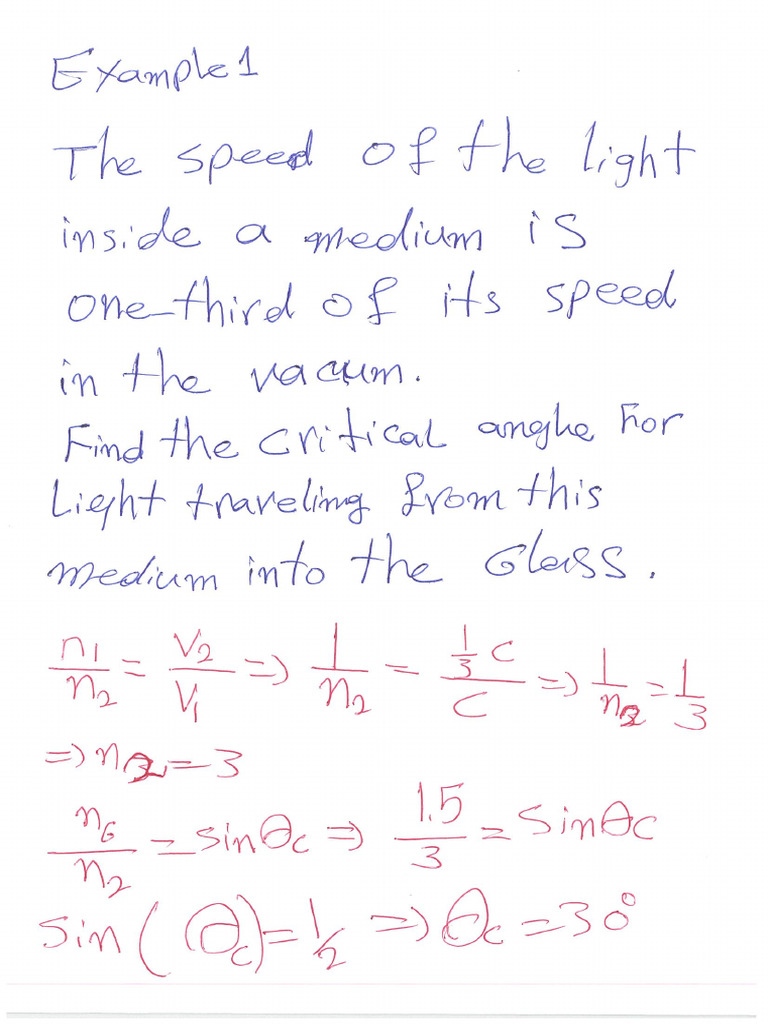 Example 1
The speed of the light
inside a medium is
one-third of its speed
in the vacuum.
Find the critical anghe For
Light traveling from this
medium into the Glass.
n1/n2 = V2/V1 => 1/n2 = (1/3 C)/C => 1/n2 = 1/3
=> n2 = 3
nG/n2 = sinθc => 1.5/3 = Sinθc
Sin(θc) = 1/2 => θc = 30°